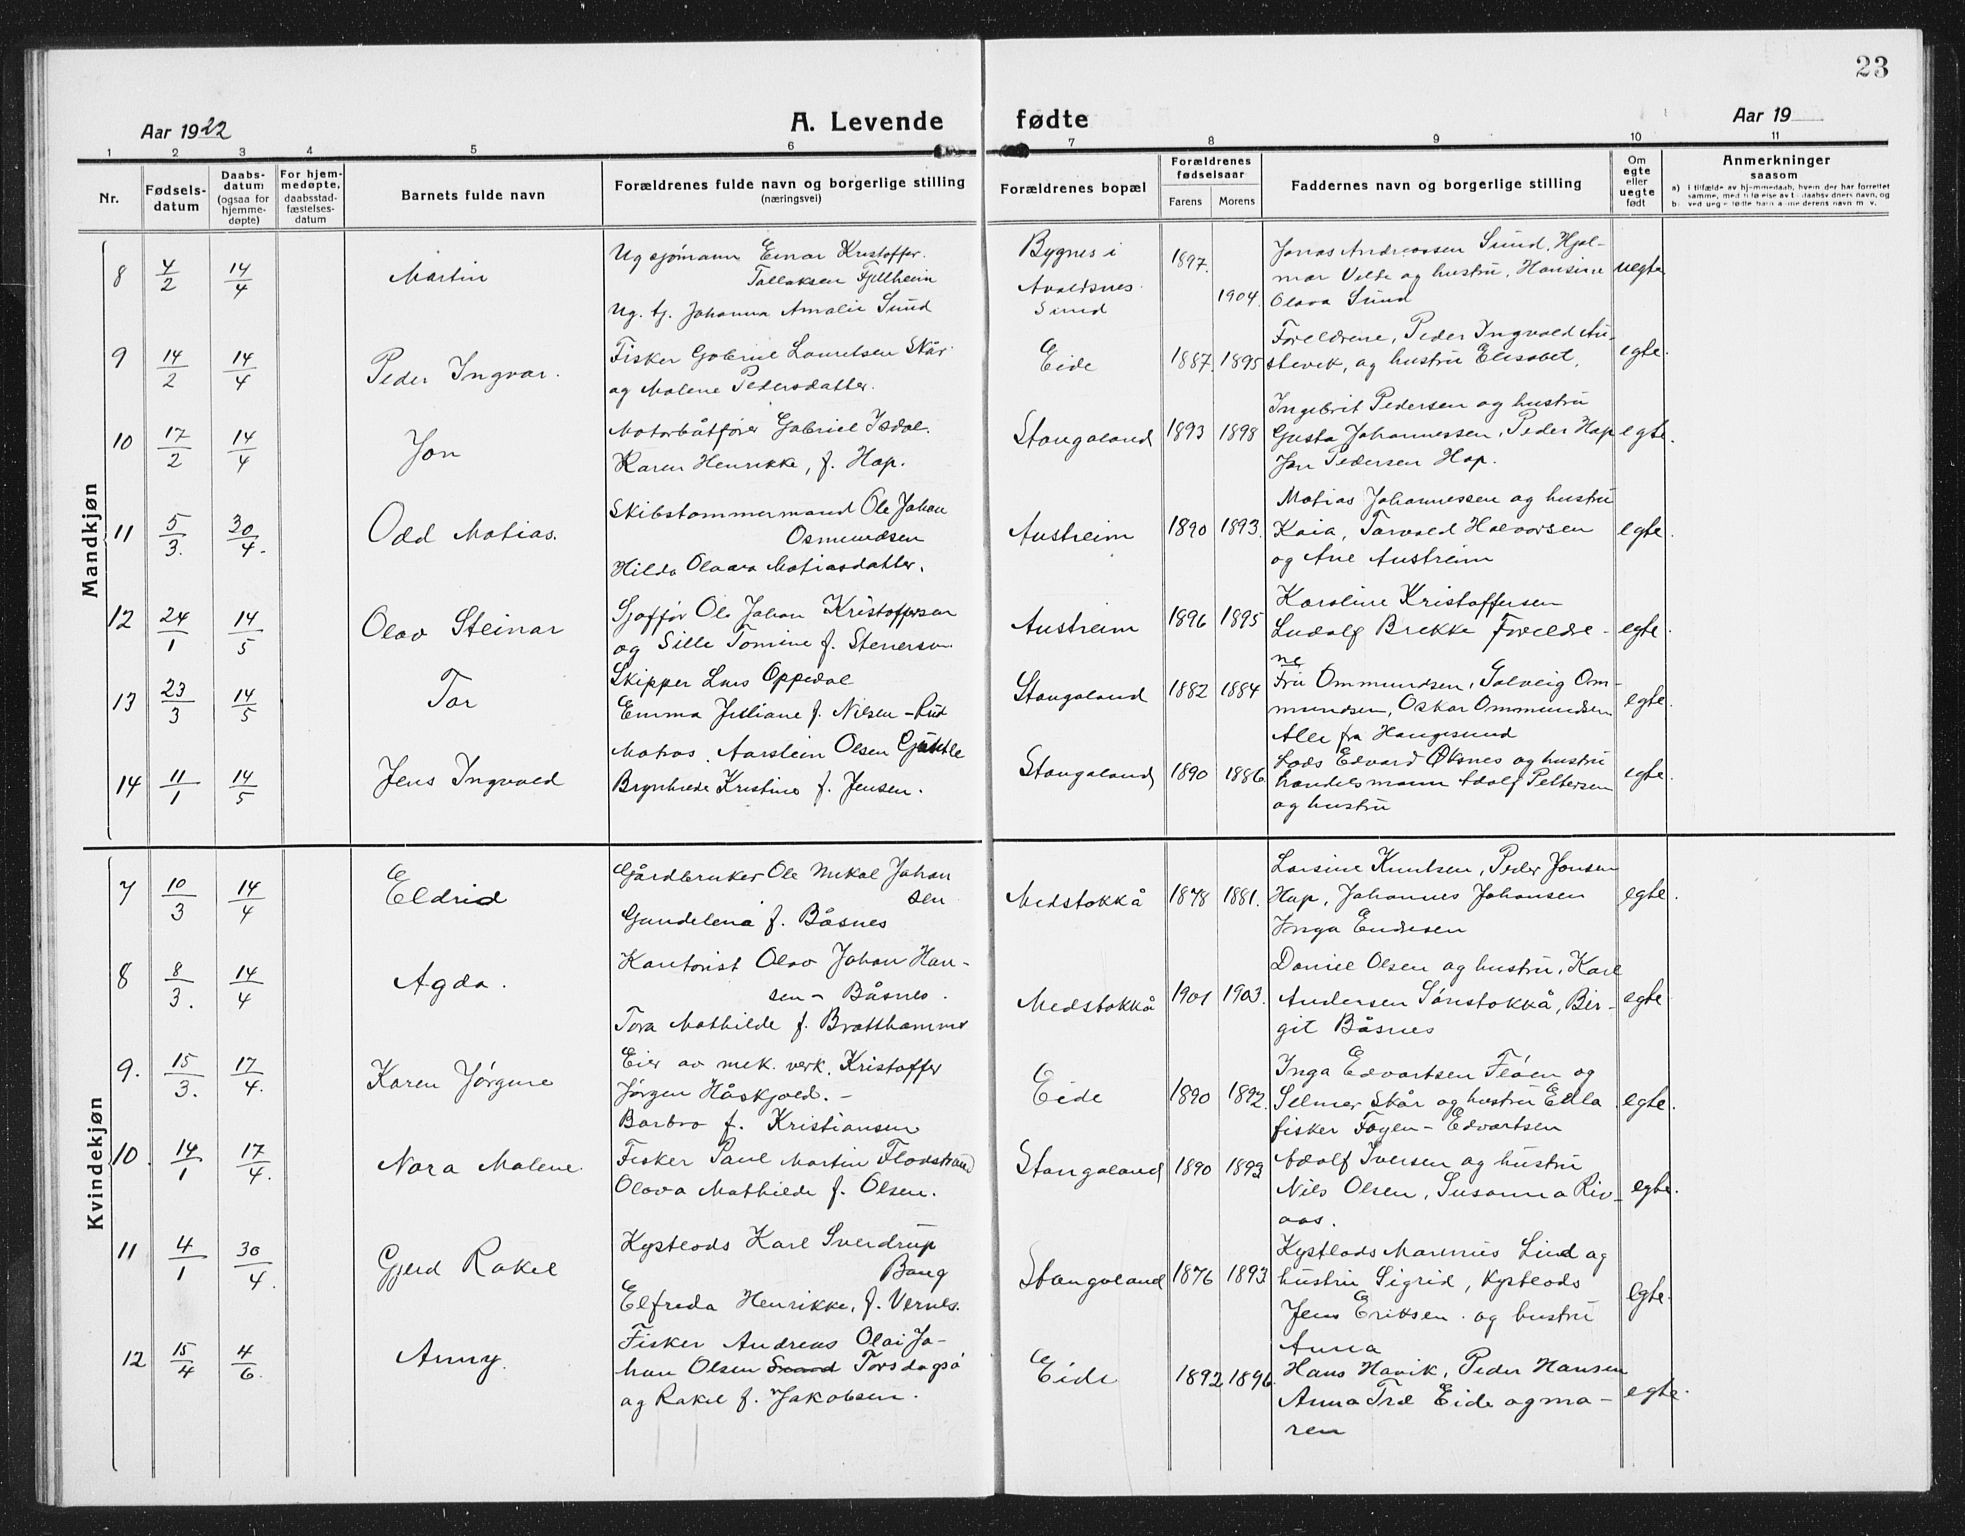 23
Aar 1922
A. Levende fødte
Aar 19
1 2 3 4 5 6 7 8 9 10 11
Nr.
Fødsels-
datum
Daabs-
datum
(ogsaa for
hjemme-
døpte)
For hjem-
medøpte,
daabsstad-
fæstelses-
datum
Barnets fulde navn
Forældrenes fulde navn og borgerlige stilling
(næringsvei)
Forældrenes bopæl
Forældrenes
fødselsaar
Farens Morens
Faddernes navn og borgerlige stilling
Om
egte
eller
uegte
født
Anmerkninger
saasom
Mandkjøn
8 4/2 14/4 Martin
Ug sjømann Einar Kristoffer.
Tallaksen Fjellheim
Ug. tj. Johanna Amalie Sund
Bygnes i
Avaldsnes.
Sund
1897. 1904.
Jonas Andreassen Sund, Hjal-
mar Velde og hustru, Hansine
Olava Sund
uegte
9 14/2 14/4 Peder Ingvar.
Fisker Gabriel Lauritsen Skår
og Malene Pedersdatter.
Eide 1887. 1895
Foreldrene, Peder Ingvald Au-
stevik, og hustru Elisabet.
egte.
10 17/2 14/4 Jon
Motorbåtfører Gabriel Isdal.
Karen Henrikke, f. Hop.
Stangaland 1893 1898
Ingebrit Pedersen og hustru
Gusta Johannessen, Peder Hap
Jon Pedersen Hap.
egte.
11 5/3. 30/4. Odd Matias.
Skibstømmermand Ole Johan
Osmundsen
Hilda Olaara Matiasdatter.
Austreim 1890 1893.
Matias Johannessen og hustru
Kaia, Torvald Halvorsen
og Ane Austreim
egte.
12 24/1 14/5 Olav Steinar
Sjåffør Ole Johan Kristoffersen
og Sille Tomine f. Stenersen
Austreim 1896 1895
Karoline Kristoffersen
Ludolf Brekke Foreldre-
ne
egte.
13 23/3 14/5 Tor
Skipper Lars Oppedal
Emma Juliane f. Nilsen - Rud
Stangaland 1882 1884
Fru Ommundsen, Solveig Om-
mundsen, Oskar Ommundsen
Alle fra Haugesund
egte.
14 11/1 14/5 Jens Ingvald
Matros. Aarstein Olsen
Brynhilde Kristine f. Jensen.
Stangaland 1890 1886.
Lods Edvard Øksnes og hustru
handelsmann Adolf Pettersen
og hustru
egte.
Kvindekjøn
7 10/3 14/4 Eldrid
Gårdbruker Ole Mikal Johan
sen
Gundelena f. Båsnes
Medstokkå 1878 1881.
Larsine Knutsen, Peder Jonsen
Hap, Johannes Johansen
Inga Endresen
egte.
8 8/3. 14/4 Agda.
Kontorist Olav Johan Han-
sen - Båsnes.
Tora Mathilde f. Bratthammer
Medstokkå 1901 1903.
Daniel Olsen og hustru, Karl
Andersen Sørstokkå, Bir-
git Båsnes
egte.
9. 15/3. 17/4. Karen Jørgine
Eier av mek. verk. Kristoffer
Jørgen Håskjold. -
Barbro f. Kristiansen
Eide 1890 1892.
Inga Edvartsen Fløen og
Selmer Skår og hustru Ella
fisker Føyen - Edvartsen
egte.
10. 14/1 17/4. Nora Malene
Fisker Paul Martin Flodstrand
Olava Mathilde f. Olsen.
Stangaland 1890 1893
Adolf Iversen og hustru
Nils Olsen, Susanna Riv-
aas.
egte.
11 4/1 30/4. Gjerd Rakel
Kystlods Karl Sverdrup
Bang
Elfreda Henrikke, f. Vernes.
Stangaland 1876 1893
Kystlods Marinus Lind og
hustru Sigrid, Kystlods
Jens Eriksen. og hustru
Anna
egte.
12 15/4 4/6 Anny.
Fisker Andreas Olai Jo-
han Olsen Torsdagsø
og Rakel f. Jakobsen.
Eide 1892 1896.
Hans Havik, Peder Hansen
Anna Træ Eide og Ma-
ren
egte.